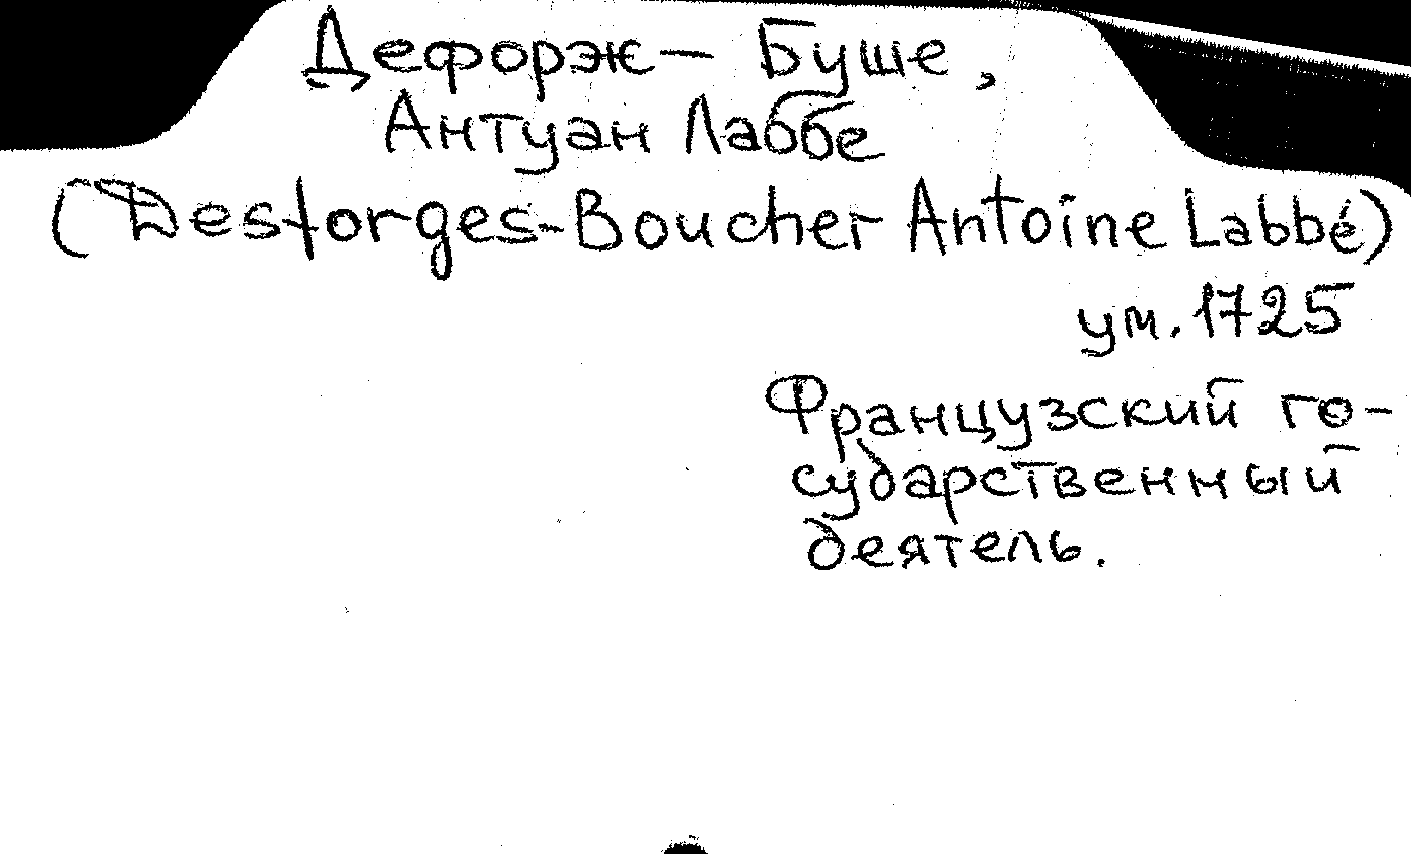 Дефорж - Буше,
Антуан Лаббе
(Desforges-Boucher Antoine Labbé)
ум. 1725
Французский го-
сударственный
деятель.